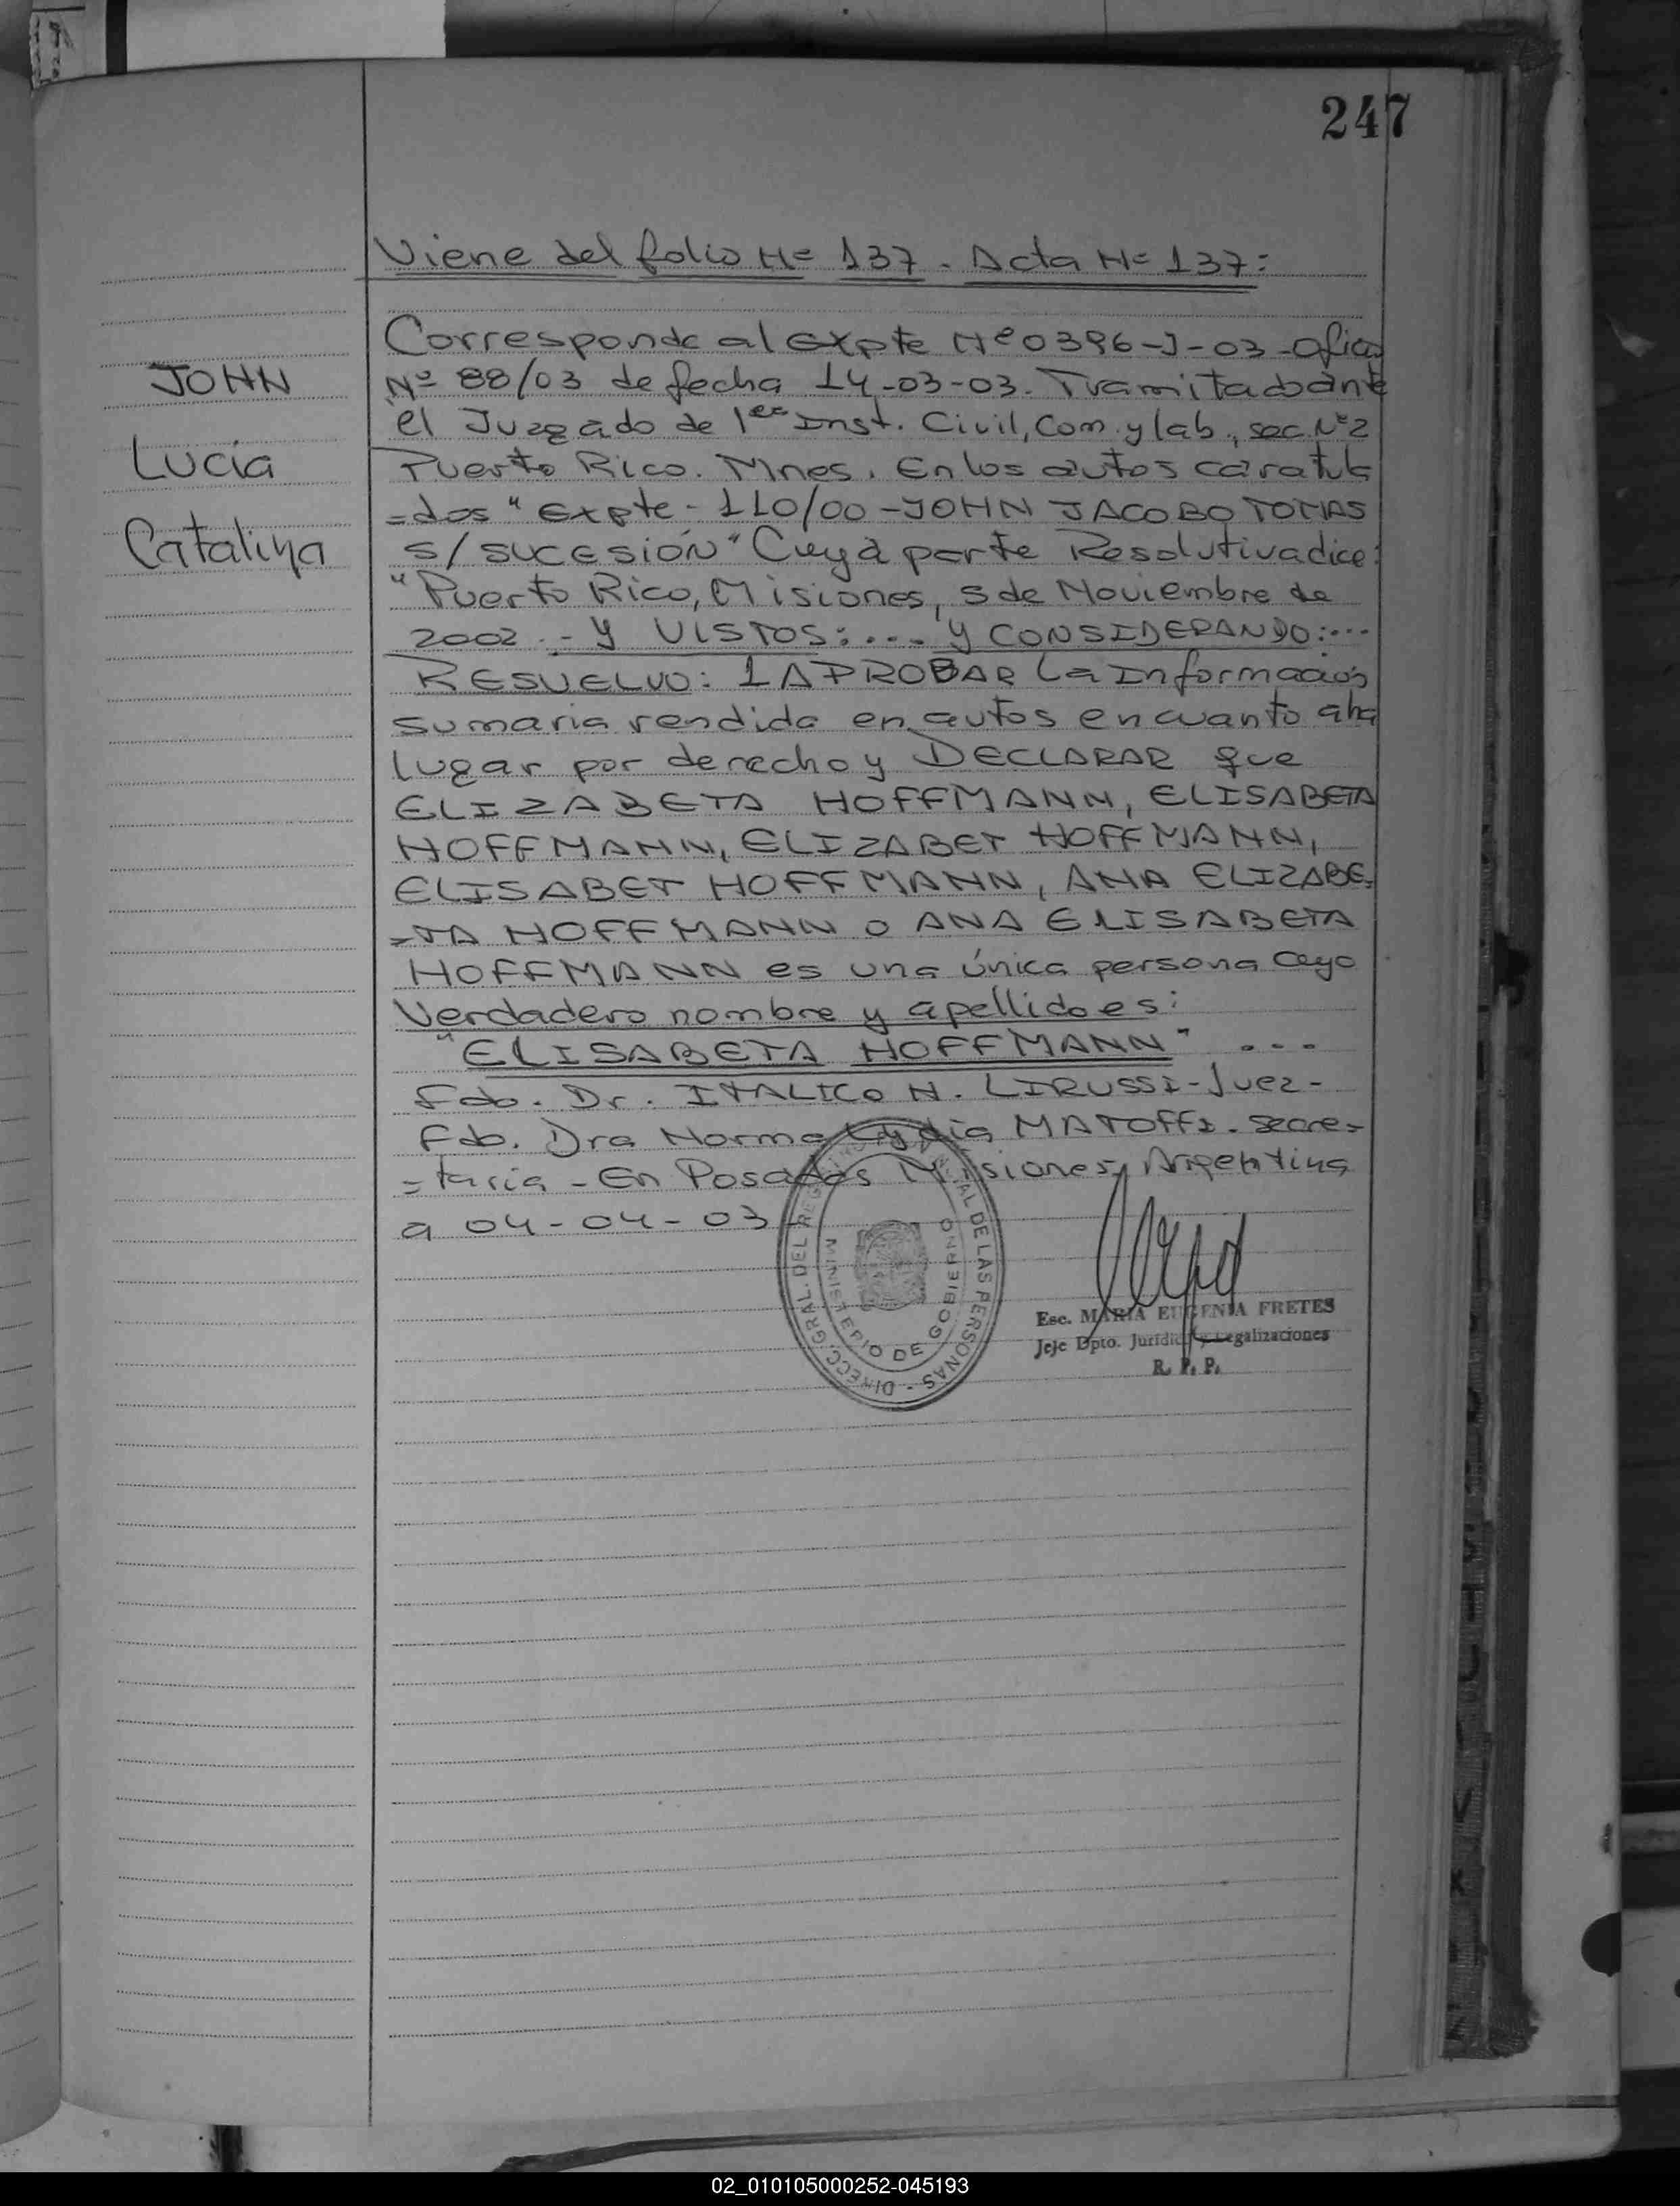 247
Viene del folio Nº 137. Acta Nº 137:
JOHN
Lucía
Catalina
Corresponde al expte Nº 0396-J-03-oficio
Nº 88/03 de fecha 14-03-03. Tramitado ante
el Juzgado de 1era Inst. Civil, Com. y lab., sec. Nº 2
Puerto Rico. Mnes. En los autos caratula
=dos "Expte - 110/00 - JOHN JACOBO TOMAS
S/SUCESIÓN" Cuya parte Resolutiva dice:
"Puerto Rico, Misiones, 5 de Noviembre de
2002.- Y VISTOS:... Y CONSIDERANDO:...
RESUELVO: 1 APROBAR la Información
sumaria rendida en autos en cuanto a ha
lugar por derecho y DECLARAR que
ELIZABETA HOFFMANN, ELISABETA
HOFFMANN, ELIZABET HOFFMANN,
ELISABET HOFFMANN, ANA ELIZABE=
=TA HOFFMANN O ANA ELISABETA
HOFFMANN es una única persona cuyo
Verdadero nombre y apellido es:
"ELISABETA HOFFMANN" ...
Fdo. Dr. ITALICO N. LIRUSSI-Juez-
Fdo. Dra Norma Lydia MATOFFI. Secre=
=taria - En Posadas Misiones, Argentina
a 04-04-03
DIRECC. GRAL. DEL REGISTRO DE LAS PERSONAS -
MINISTERIO DE GOBIERNO
Esc. MARIA EUGENIA FRETES
Jefe Dpto. Jurídico y Legalizaciones
R. P. P.
02_010105000252-045193